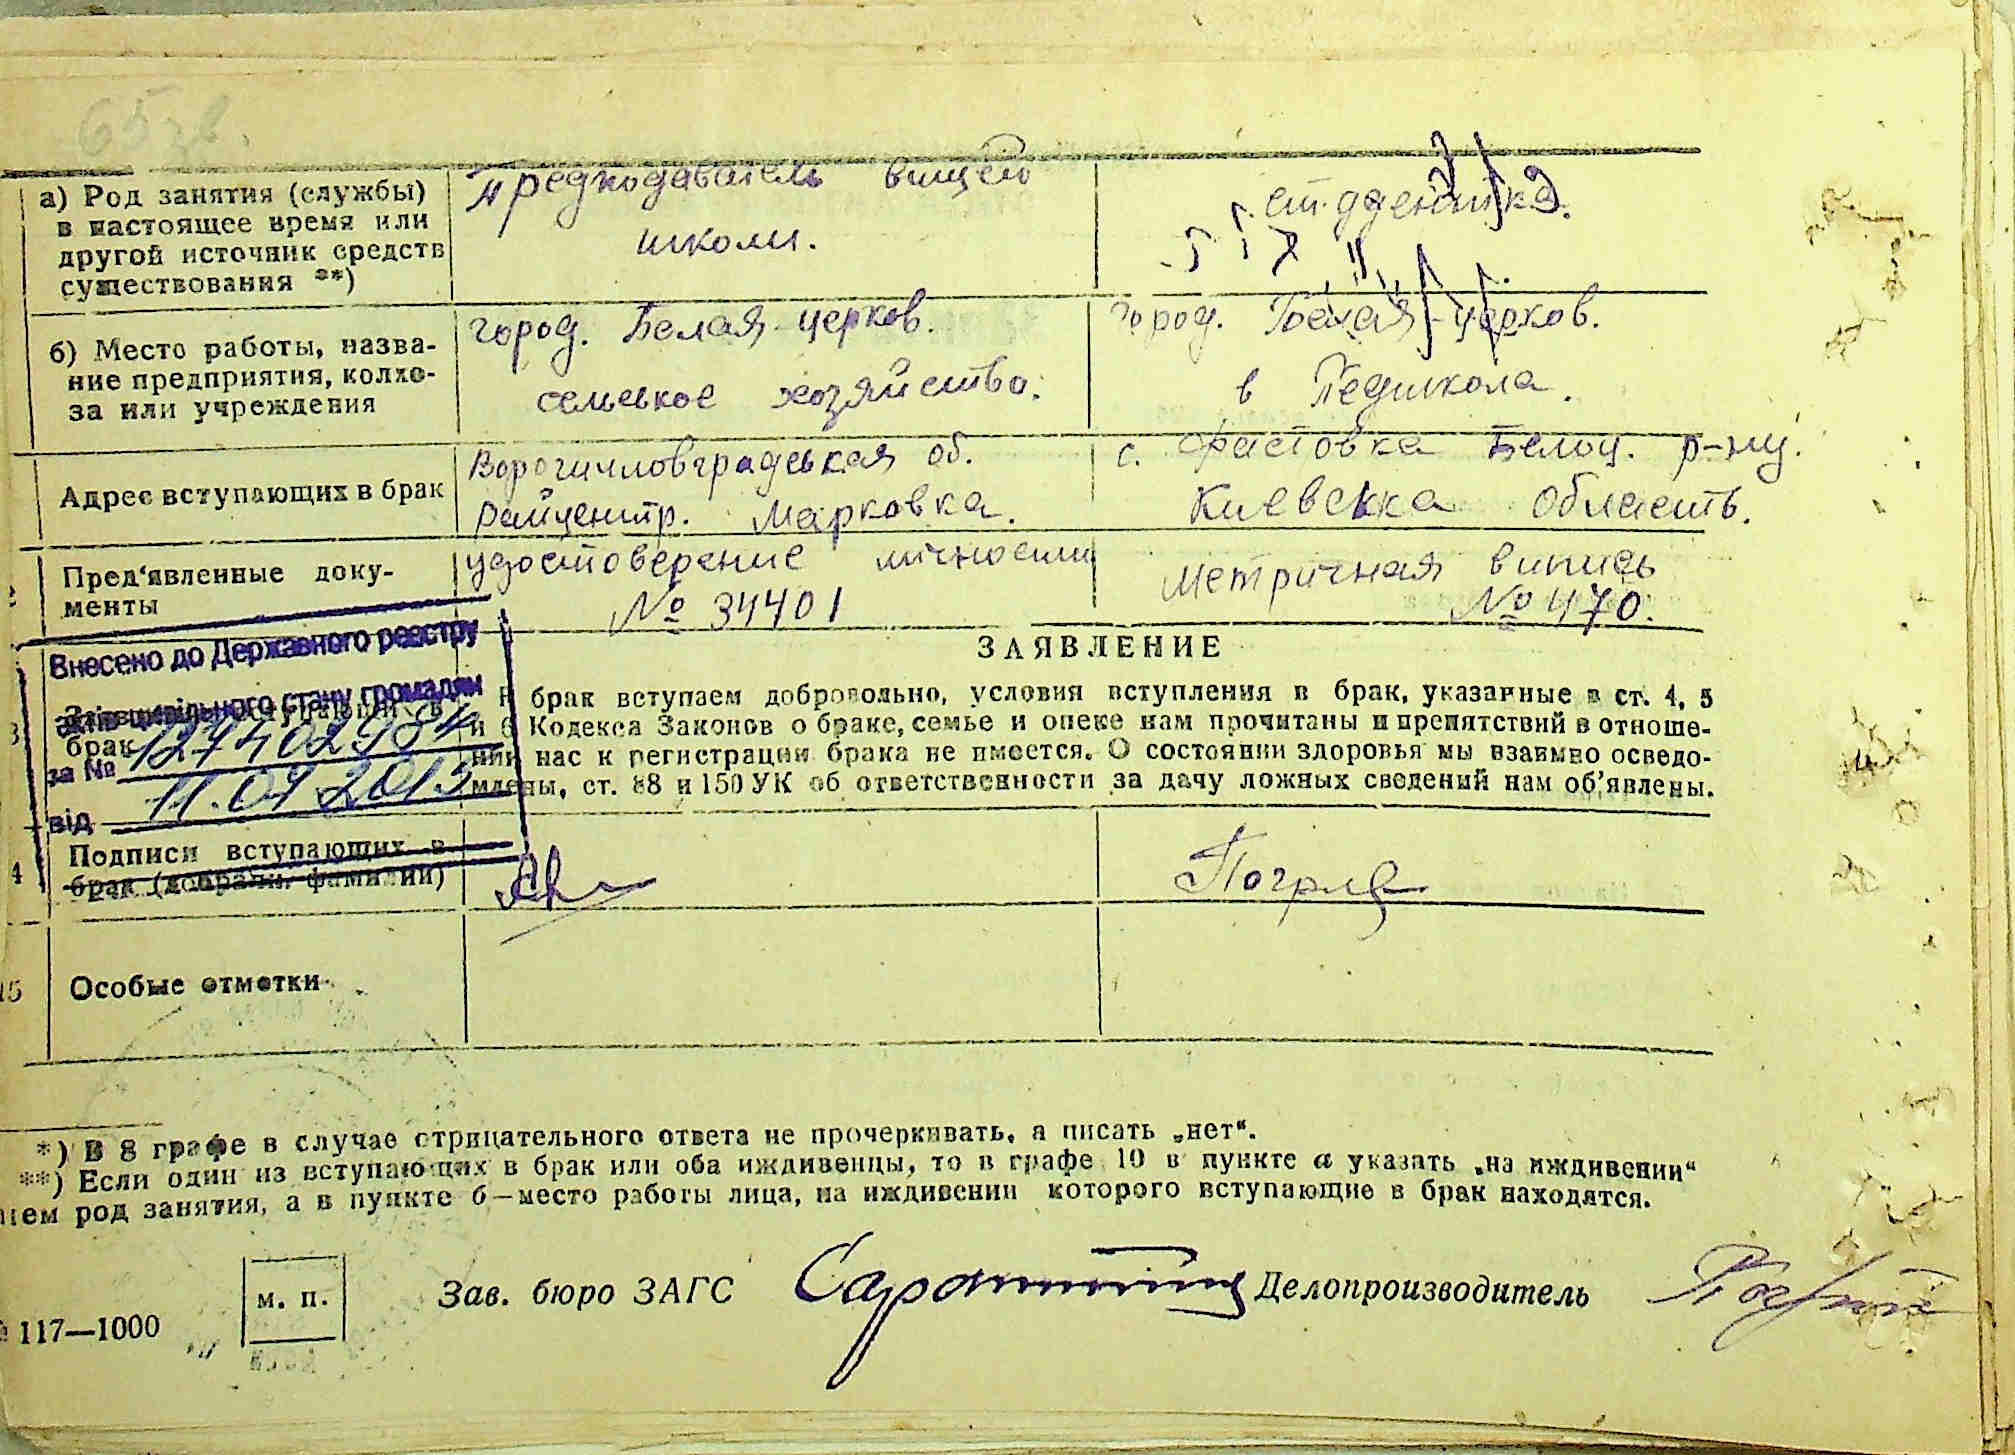 65 зв.
а) Род занятия (службы)
в настоящее время или
другой источник средств
существования **)
Предподаватель вищей
школи.
студдентка.
б) Место работы, назва-
ние предприятия, колхо-
за или учреждения
город. Белая-церков.
сельское хозяйство.
город. Белая-церков.
в Педшкола.
Адрес вступающих в брак
Ворошиловградськая об.
Райцентр. Марковка.
с. Фастовка Белоц. р-ну.
Киевська область.
Пред'явленные доку-
менты
удостоверение личности
№ 34401
Метричная випись
№ 470.
Внесено до Державного реєстру
актів цивільного стану громадян
за №
від 11.04.2013
ЗАЯВЛЕНИЕ
В брак вступаем добровольно, условия вступления в брак, указанные в ст. 4, 5
и 6 Кодекса Законов о браке, семье и опеке нам прочитаны и препятствий в отноше-
нии нас к регистрации брака не имеется. О состоянии здоровья мы взаимно осведо-
млены, ст. 88 и 150 УК об ответственности за дачу ложных сведений нам об'явлены.
4
Подписи вступающих в
брак (добрачн. фамилии)
15
Особые отметки
*) В 8 графе в случае отрицательного ответа не прочеркивать, а писать „нет“.
**) Если один из вступающих в брак или оба иждивенцы, то в графе 10 в пункте а указать „на иждивении“
чем род занятия, а в пункте б—место работы лица, на иждивении которого вступающие в брак находятся.
м. п.
Зав. бюро ЗАГС
Делопроизводитель
№ 117—1000